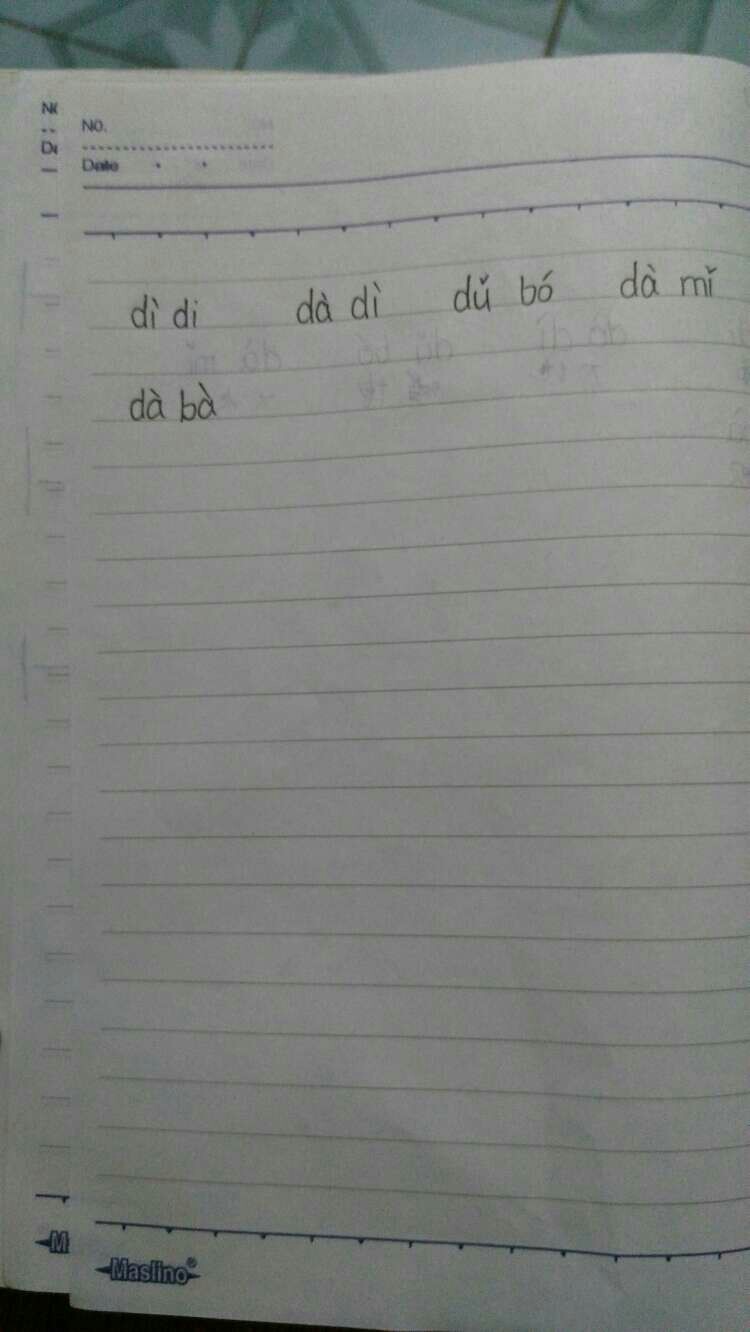 No.
Date
dì di dà dì dǔ bó dà mǐ
dà bà
Maslino®